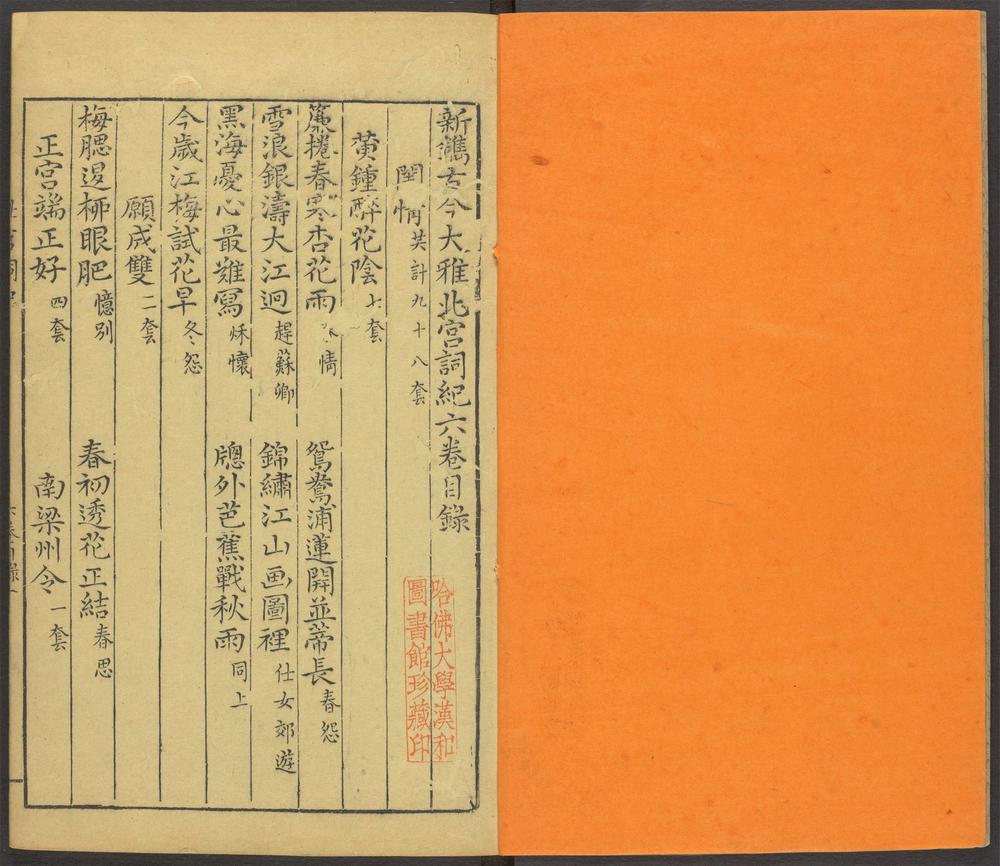 新鐫古今大雅北宮詞紀六卷目錄
閨情共計九十八套
黃鍾醉花陰七套
簾捲春寒杏花雨 情 鴛鴦浦蓮開並蒂長春怨
雪浪銀濤大江迥趕蘇卿 錦繡江山画圖裡仕女郊遊
黑海憂心最難寫秋懷 牕外芭蕉戰秋雨同上
今歲江梅試花早冬怨
願成雙二套
梅腮退柳眼肥憶別 春初透花正結春思
正宮端正好四套 南梁州令一套
哈佛大學漢和
圖書館珍藏印